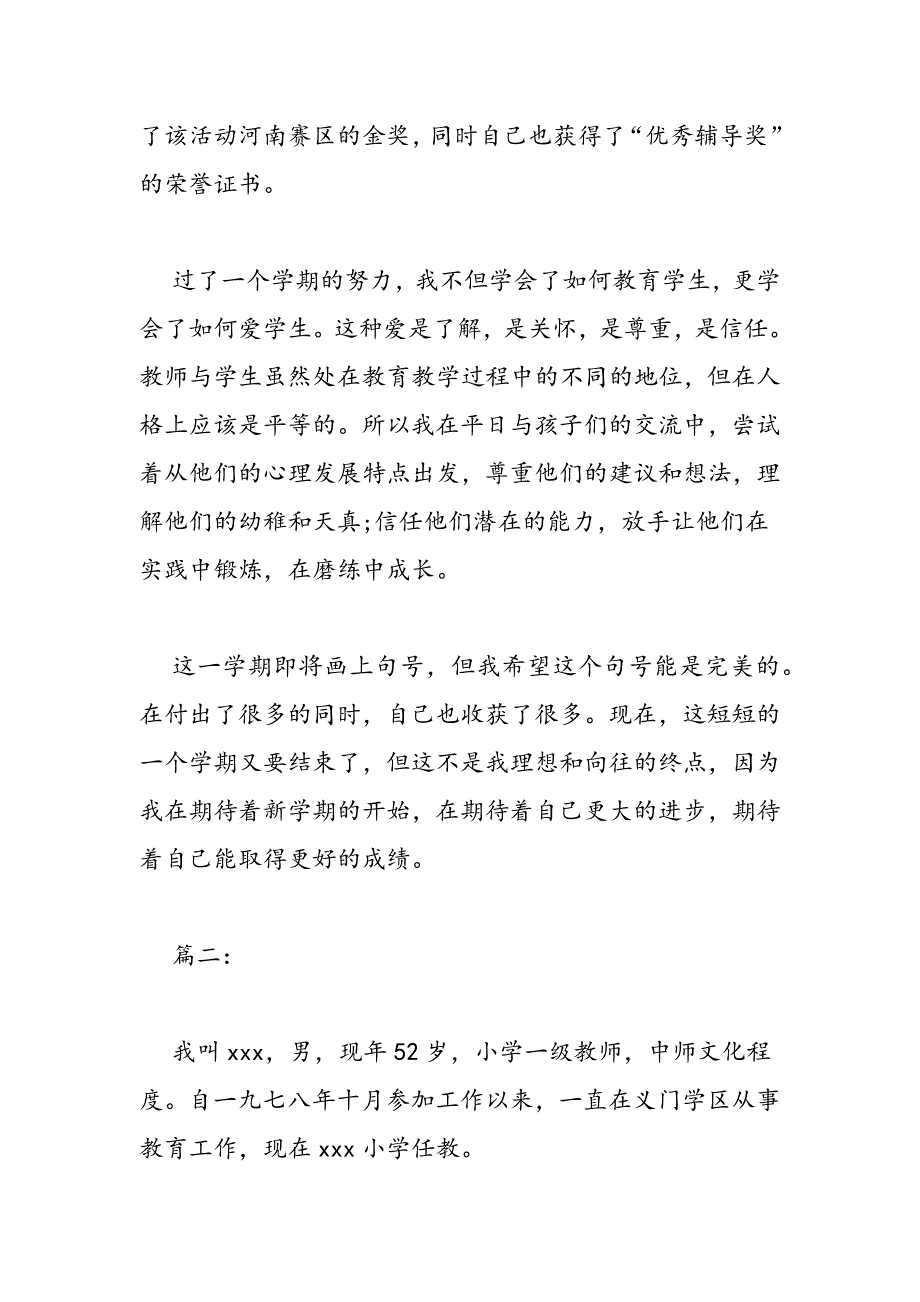 了该活动河南赛区的金奖，同时自己也获得了“优秀辅导奖”
的荣誉证书。
过了一个学期的努力，我不但学会了如何教育学生，更学
会了如何爱学生。这种爱是了解，是关怀，是尊重，是信任。
教师与学生虽然处在教育教学过程中的不同的地位，但在人
格上应该是平等的。所以我在平日与孩子们的交流中，尝试
着从他们的心理发展特点出发，尊重他们的建议和想法，理
解他们的幼稚和天真;信任他们潜在的能力，放手让他们在
实践中锻炼，在磨练中成长。
这一学期即将画上句号，但我希望这个句号能是完美的。
在付出了很多的同时，自己也收获了很多。现在，这短短的
一个学期又要结束了，但这不是我理想和向往的终点，因为
我在期待着新学期的开始，在期待着自己更大的进步，期待
着自己能取得更好的成绩。
篇二：
我叫 xxx，男，现年 52 岁，小学一级教师，中师文化程
度。自一九七八年十月参加工作以来，一直在义门学区从事
教育工作，现在 xxx 小学任教。